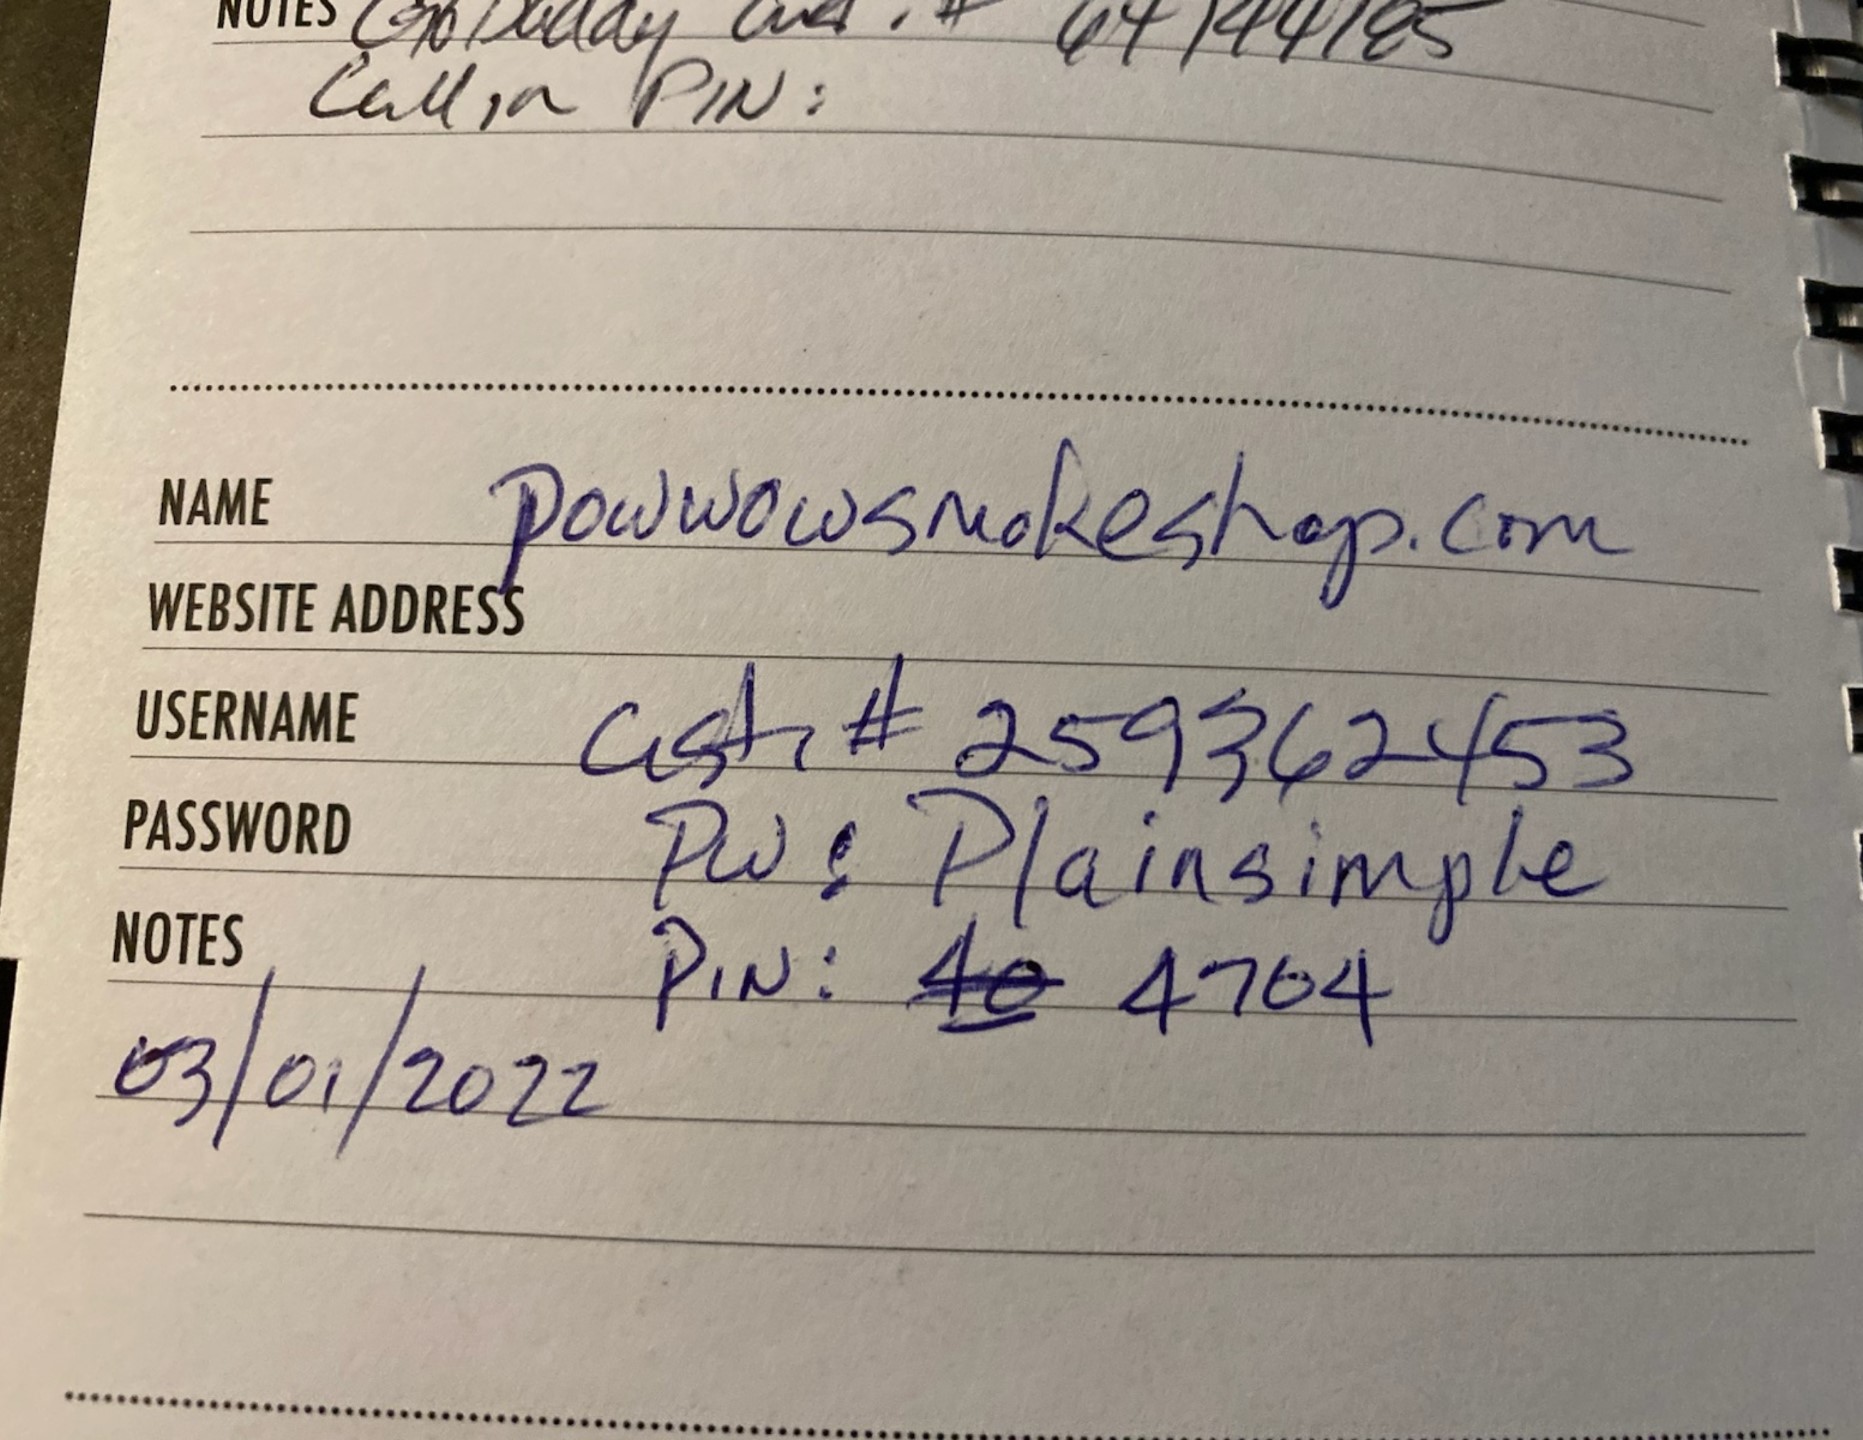 NOTES GoDaddy Cust. # 64144185
Call in PIN:
NAME powwowsmokeshop.com
WEBSITE ADDRESS
USERNAME Cust. # 259362453
PASSWORD PW: Plainsimple
NOTES PIN: 40 4704
03/01/2022